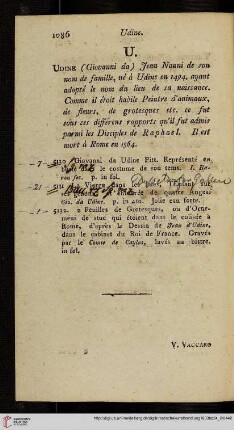 1086 Udine.
U.
UDINE (Giovanni da) Jean Nanni de son
nom de famille, né à Udine en 1494, ayant
adopté le nom du lieu de sa naissance.
Comme il étoit habile Peintre d'animaux,
de fleurs, de grotesques etc. ce fut
sous ces différens rapports qu'il fut admis
parmi les Disciples de Raphael. Il est
mort à Rome en 1564.
7 Giovanni da Udine Pitt. Représenté en
le costume de son tems. p. in fol.
21 Vierge dans les l'Enfant
de quatre Anges.
p. in 4to. Jolie eau forte.
1 2 Feuilles de Grotesques, ou d'Orne-
mens de stuc qui étoient dans le colisée à
Rome, d'après le Dessin de Jean d'Udine,
dans le cabinet du Roi de France. Gravés
par le Comte de Caylus, lavés au bistre.
in fol.
V. VACCARO